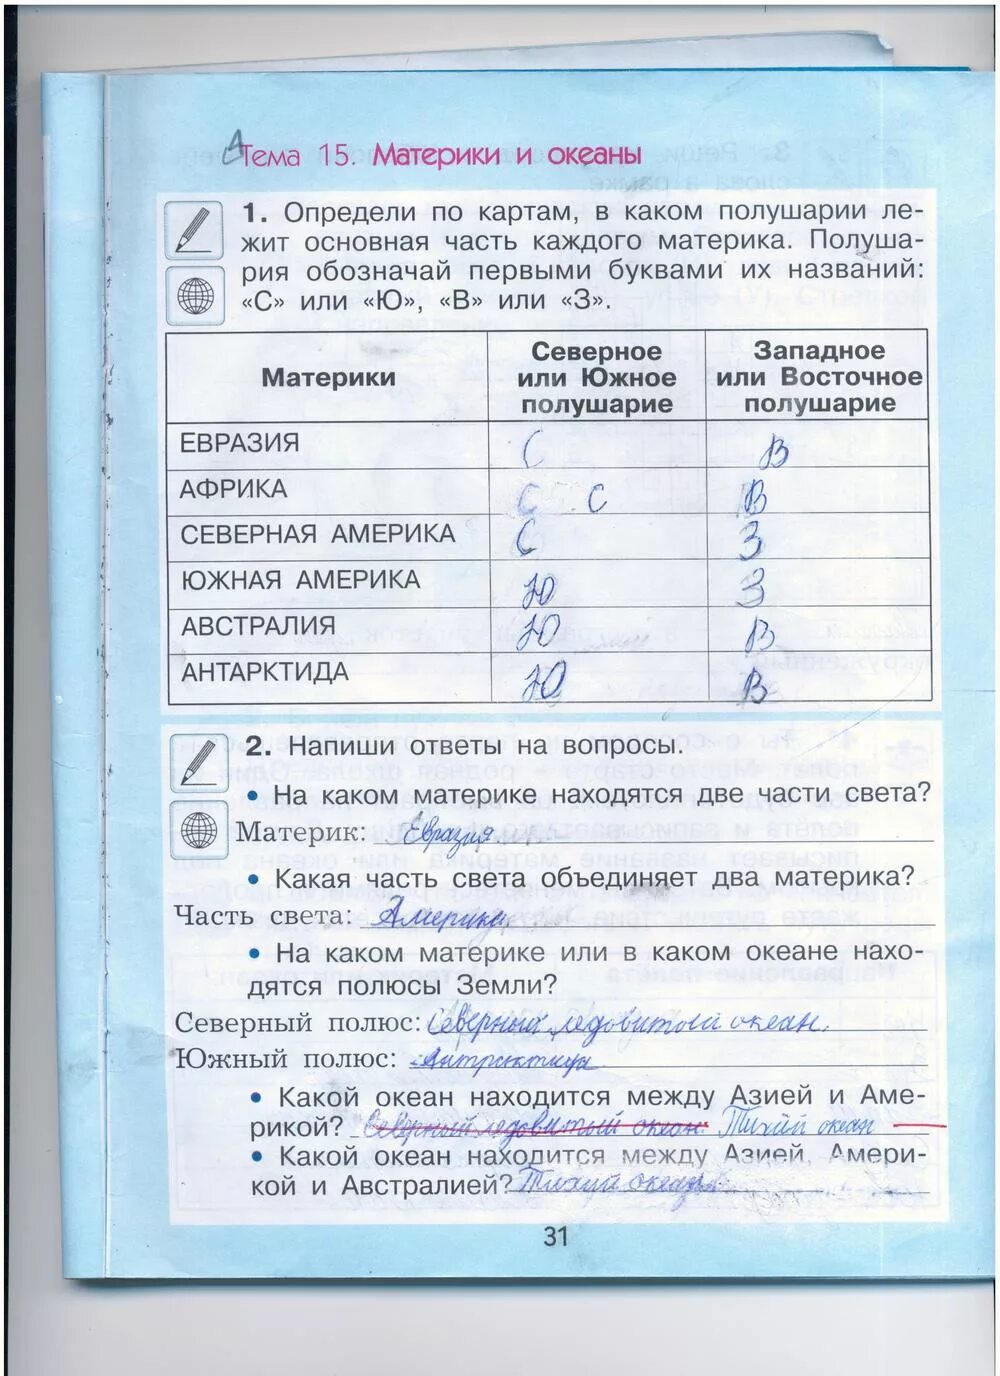 Тема 15. Материки и океаны
1. Определи по картам, в каком полушарии ле-
жит основная часть каждого материка. Полуша-
рия обозначай первыми буквами их названий:
«С» или «Ю», «В» или «З».
Материки
Северное или Южное полушарие
Западное или Восточное полушарие
ЕВРАЗИЯ С В
АФРИКА С С В
СЕВЕРНАЯ АМЕРИКА С З
ЮЖНАЯ АМЕРИКА Ю З
АВСТРАЛИЯ Ю В
АНТАРКТИДА Ю В
2. Напиши ответы на вопросы.
• На каком материке находятся две части света?
Материк: Евразия
• Какая часть света объединяет два материка?
Часть света: Америка
• На каком материке или в каком океане нахо-
дятся полюсы Земли?
Северный полюс: Северный ледовитый океан.
Южный полюс:
• Какой океан находится между Азией и Аме-
рикой? Северный ледовитый океан Тихий океан
• Какой океан находится между Азией, Амери-
кой и Австралией? Тихий океан
31